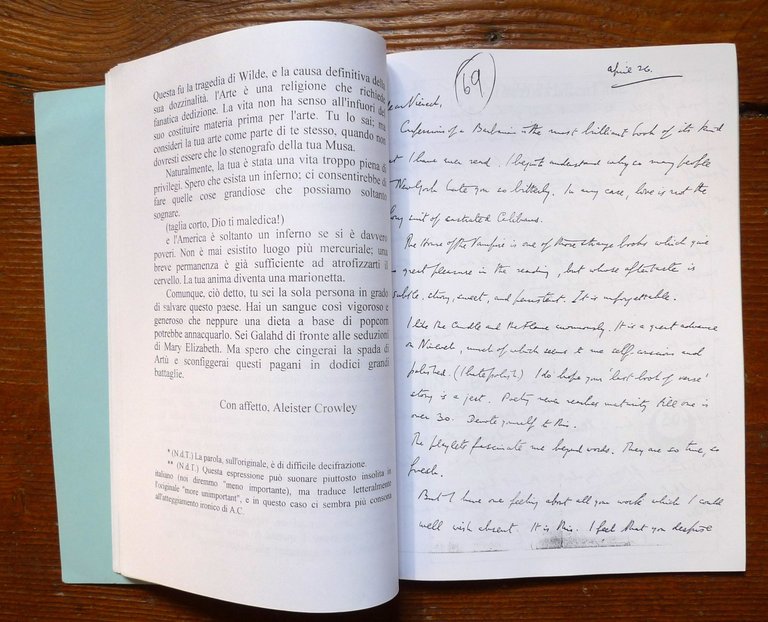 Questa fu la tragedia di Wilde, e la causa definitiva della
sua dozzinalità. l'Arte è una religione che richiede
fanatica dedizione. La vita non ha senso all'infuori del
suo costituire materia prima per l'arte. Tu lo sai; ma
consideri la tua arte come parte di te stesso, quando non
dovresti essere che lo stenografo della tua Musa.
Naturalmente, la tua è stata una vita troppo piena di
privilegi. Spero che esista un inferno; ci consentirebbe di
fare quelle cose grandiose che possiamo soltanto
sognare.
(taglia corto, Dio ti maledica!)
e l'America è soltanto un inferno se si è davvero
poveri. Non è mai esistito luogo più mercuriale; una
breve permanenza è già sufficiente ad atrofizzarti il
cervello. La tua anima diventa una marionetta.
Comunque, ciò detto, tu sei la sola persona in grado
di salvare questo paese. Hai un sangue così vigoroso e
generoso che neppure una dieta a base di popcorn
potrebbe annacquarlo. Sei Galahd di fronte alle seduzioni
di Mary Elizabeth. Ma spero che cingerai la spada di
Artù e sconfiggerai questi pagani in dodici grandi
battaglie.
Con affetto, Aleister Crowley
* (N.d.T.) La parola, sull'originale, è di difficile decifrazione.
** (N.d.T.) Questa espressione può suonare piuttosto insolita in
italiano (noi diremmo "meno importante), ma traduce letteralmente
l'originale "more unimportant", e in questo caso ci sembra più consona
all'atteggiamento ironico di A.C.
69
april 26.
Viereck,
Confessions of a Barbarian is the most brilliant book of its kind
I have ever read. I begin to understand why so many people
New York hate you so bitterly. In any case, love is not the
suit of castrated Calibans.
The House of the Vampire is one of those strange books which give
great pleasure in the reading, but whose aftertaste is
subtle, strong, sweet, and persistent. It is unforgettable.
I like the Candle and the Flame enormously. It is a great advance
on Nineveh, much of which seems to me self conscious and
polished. (I hate polish) I do hope your 'last book of verse'
story is a jest. Poetry never reaches maturity till one is
over 30. Devote yourself to this.
The playlets fascinate me beyond words. They are so true, so
fresh.
But I have one feeling about all your work which I could
well wish absent. It is this. I feel that you despise